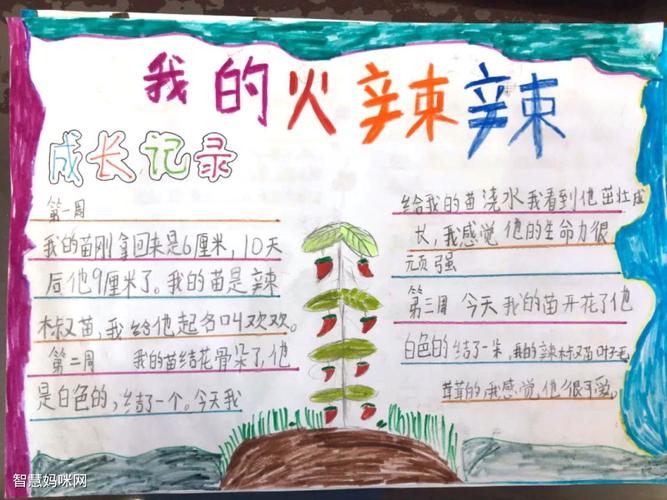 我的火辣辣
成长记录
第一周
我的苗刚拿回来是6厘米,10天
后他9厘米了。我的苗是辣
椒苗,我给他起名叫欢欢。
第二周 我的苗结花骨朵了,他
是白色的,结了一个。今天我
给我的苗浇水我看到他茁壮成
长,我感觉他的生命力很
顽强
第三周 今天我的苗开花了他
白色的结了一朵,我的辣椒苗叶子毛
茸茸的我感觉他很可爱。
智慧妈咪网